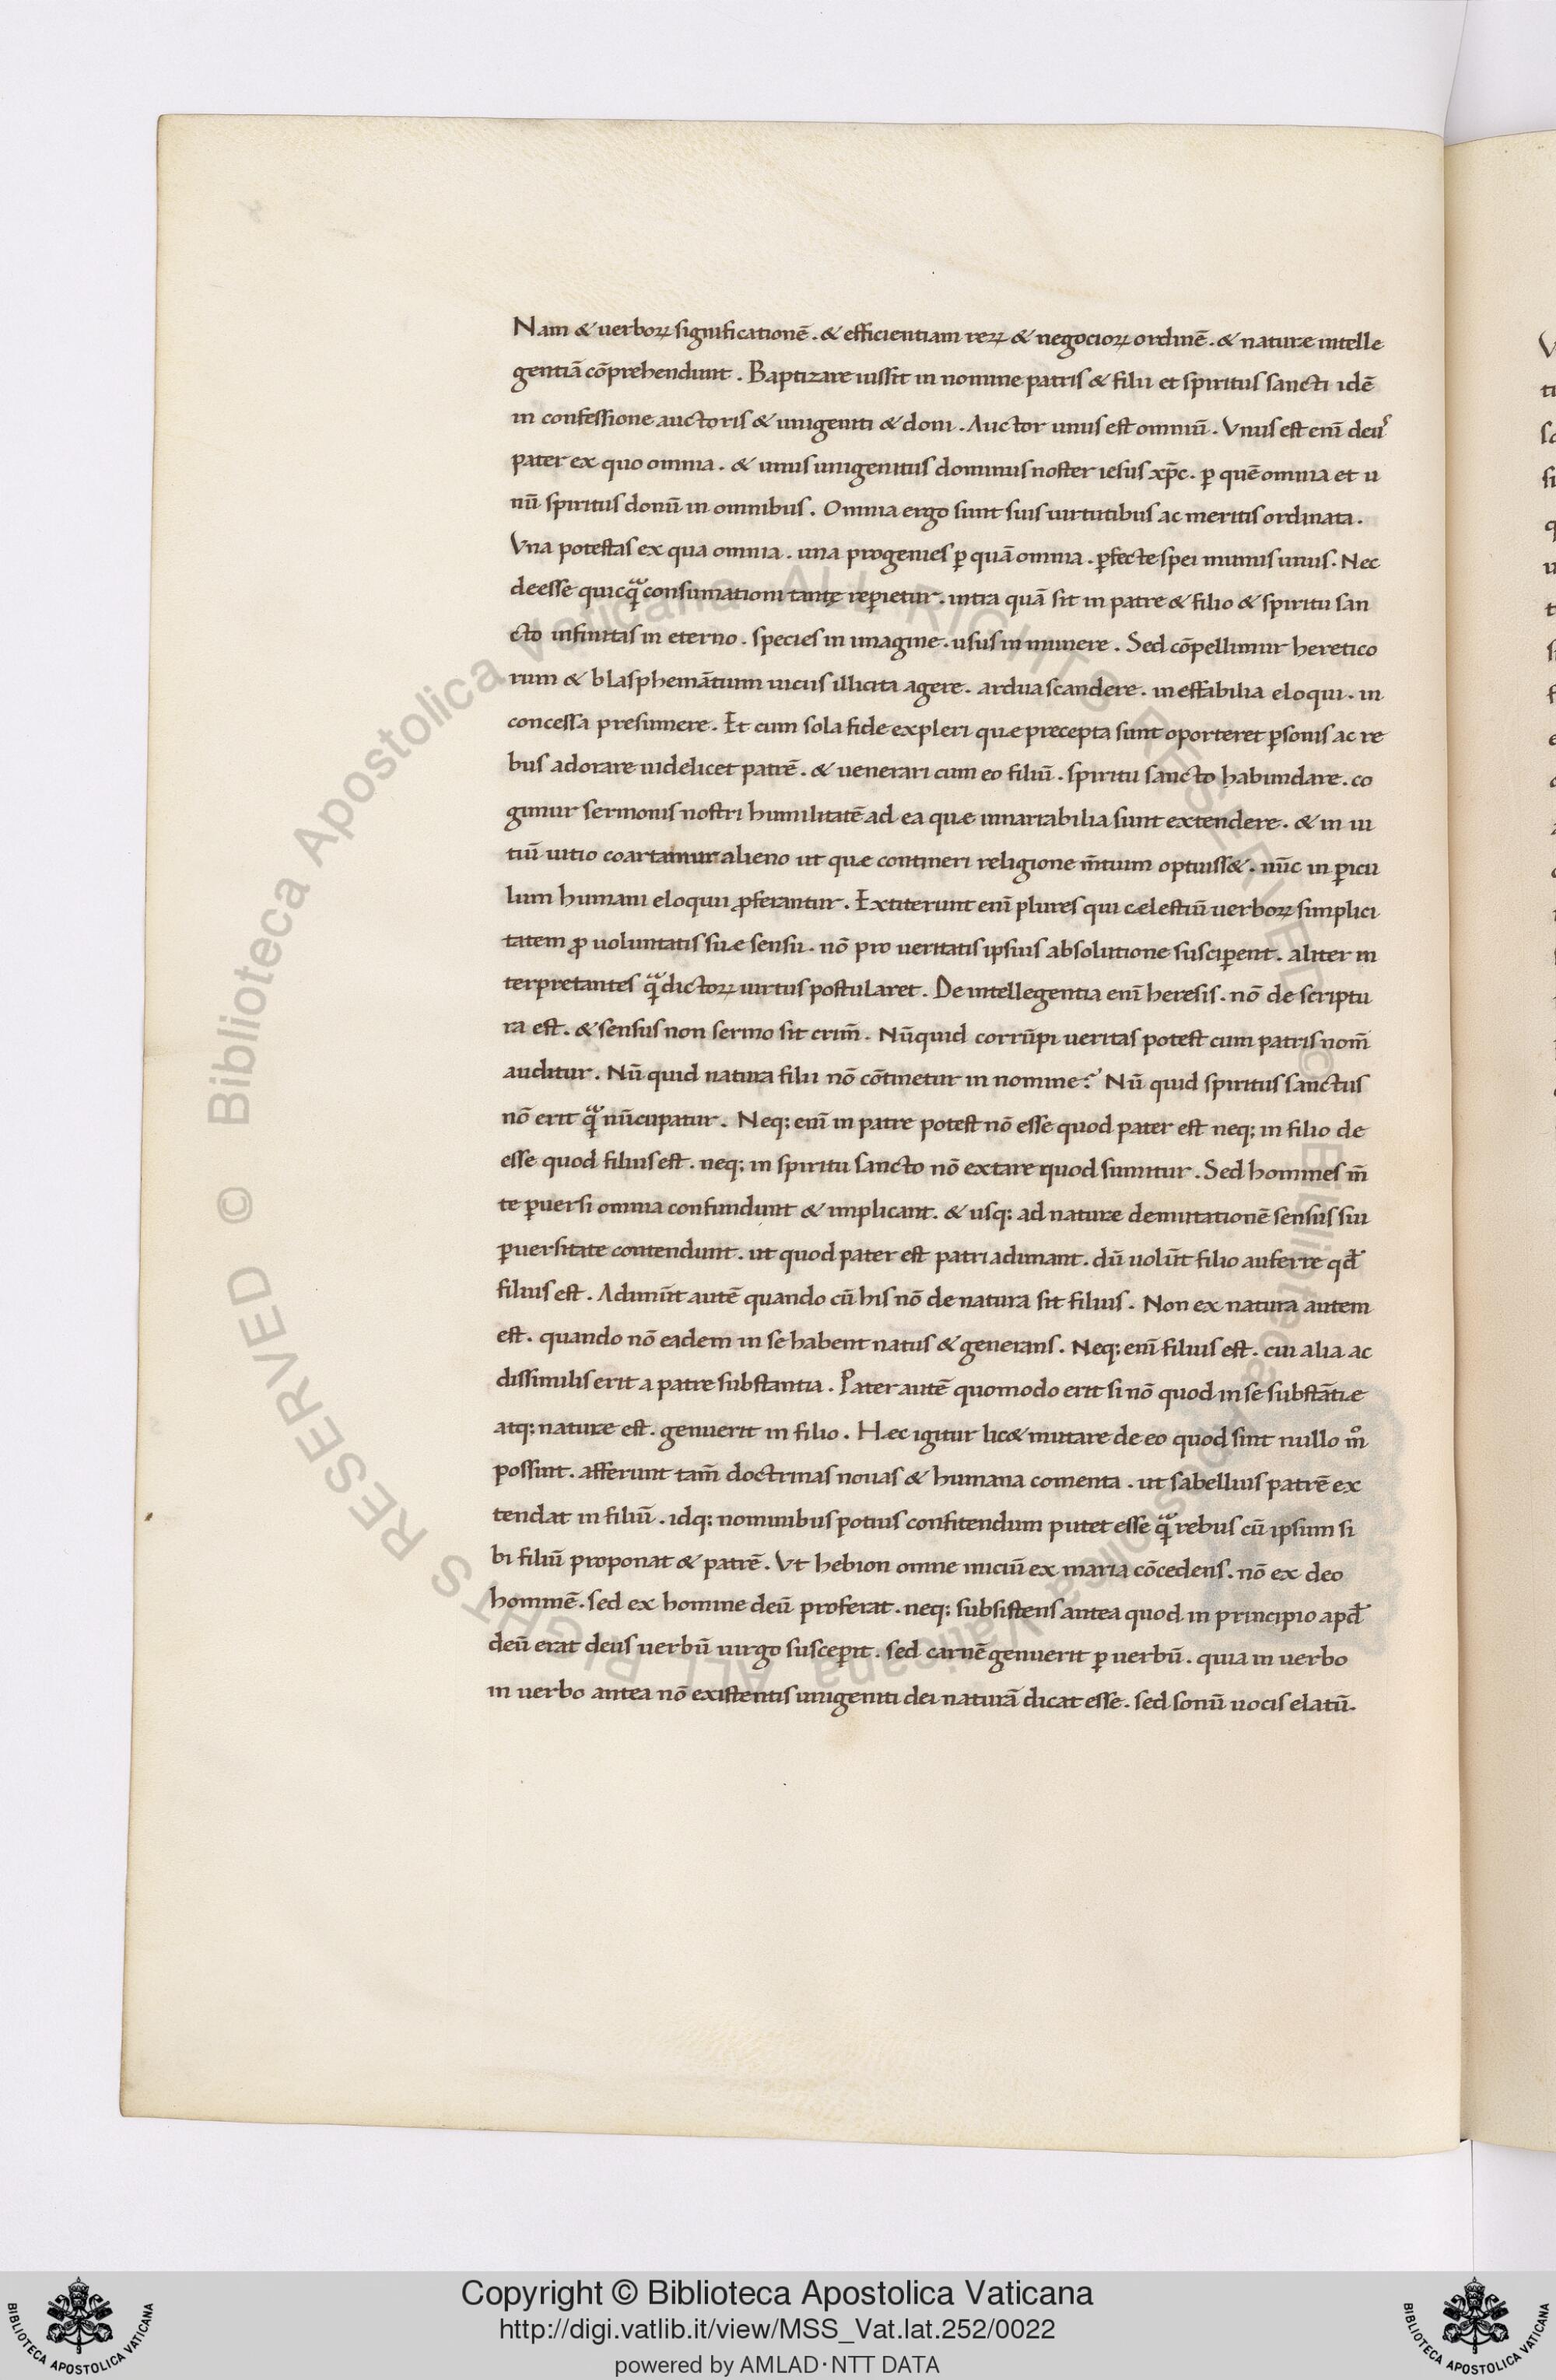 Nam & uerboꝝ significationē . & efficientiam reꝝ & negocioꝝ ordinē . & naturæ intelle
gentiā cōprehendunt . Baptizare iussit in nomine patris & filii et spiritus sancti idē
in confessione auctoris & unigeniti & doni . Auctor unus est omniū . Vnus est enī deus
pater ex quo omnia . & unus unigenitus dominus noster iesus xp̄c . ꝑ quē omnia et u
nū spiritus donū in omnibus . Omnia ergo sunt suis uirtutibus ac meritis ordinata .
Vna potestas ex qua omnia . una progenies ꝑ quā omnia . ꝑfecte spei munus unus . Nec
deesse quicqᷓ consumationi tantę reꝑietur . intra quā sit in patre & filio & spiritu san
cto infinitas in eterno . species in imagine . usus in munere . Sed cōpellimur heretico
rum & blasphemātium uicus illicita agere . ardua scandere . ineffabilia eloqui . in
concessa presumere . Et cum sola fide expleri quæ precepta sunt oporteret ꝑsonis ac re
bus adorare uidelicet patrē . & uenerari cum eo filiū . spiritu sancto habundare . co
gimur sermonis nostri humilitatē ad ea quæ innarrabilia sunt extendere . & in ui
tiū uitio coartamur alieno ut quæ contineri religione m̄tium optuiss& . nūc in ꝑicu
lum humani eloquii ꝓferantur . Extiterunt enī plures qui cælestiū uerboꝝ simplici
tatem ꝓ uoluntatis suæ sensu . nō pro ueritatis ipsius absolutione susciꝑent . aliter in
terpretantes qᷓ dictoꝝ uirtus postularet . De intellegentia enī heresis . nō de scriptu
ra est . & sensus non sermo sit crim̄ . Nūquid corrūpi ueritas potest cum patris nom̄
auditur . Nū quid natura filii nō cōtinetur in nomine ? Nū quid spiritus sanctus
nō erit qᷓ nūcupatur . Neq; enī in patre potest nō esse quod pater est neq; in filio de
esse quod filius est . neq; in spiritu sancto nō extare quod sumitur . Sed homines m̄
te ꝑuersi omnia confundunt & implicant . & usq; ad naturæ demutationē sensus sui
ꝑuersitate contendunt . ut quod pater est patri adimant . dū uolūt filio auferre qd̄
filius est . Adimūt autē quando cū his nō de natura sit filius . Non ex natura autem
est . quando nō eadem in se habent natus & generans . Neq; enī filius est . cui alia ac
dissimilis erit a patre substantia . Pater autē quomodo erit si nō quod in se substātiæ
atq; naturæ est . genuerit in filio . Hæc igitur lic& mutare de eo quod sint nullo m̊
possint . afferunt tam̄ doctrinas nouas & humana comenta . ut sabellius patrē ex
tendat in filiū . idq; nominibus potius confitendum putet esse qᷓ rebus cū ipsum si
bi filiū proponat & patrē . Vt hebion omne iniciū ex maria cōcedens . nō ex deo
hominē . sed ex homine deū proferat . neq; subsistens antea quod in principio apd̄
deū erat deus uerbū uirgo susceꝑit . sed carnē genuerit ꝑ uerbū . quia in uerbo
in uerbo antea nō existentis unigeniti dei naturā dicat esse . sed sonū uocis elatū .
© Biblioteca Apostolica Vaticana ALL RIGHTS RESERVED © Biblioteca Apostolica Vaticana ALL RIGHTS RESERVED
Copyright © Biblioteca Apostolica Vaticana
http://digi.vatlib.it/view/MSS_Vat.lat.252/0022
powered by AMLAD·NTT DATA
BIBLIOTECA APOSTOLICA VATICANA
BIBLIOTECA APOSTOLICA VATICANA